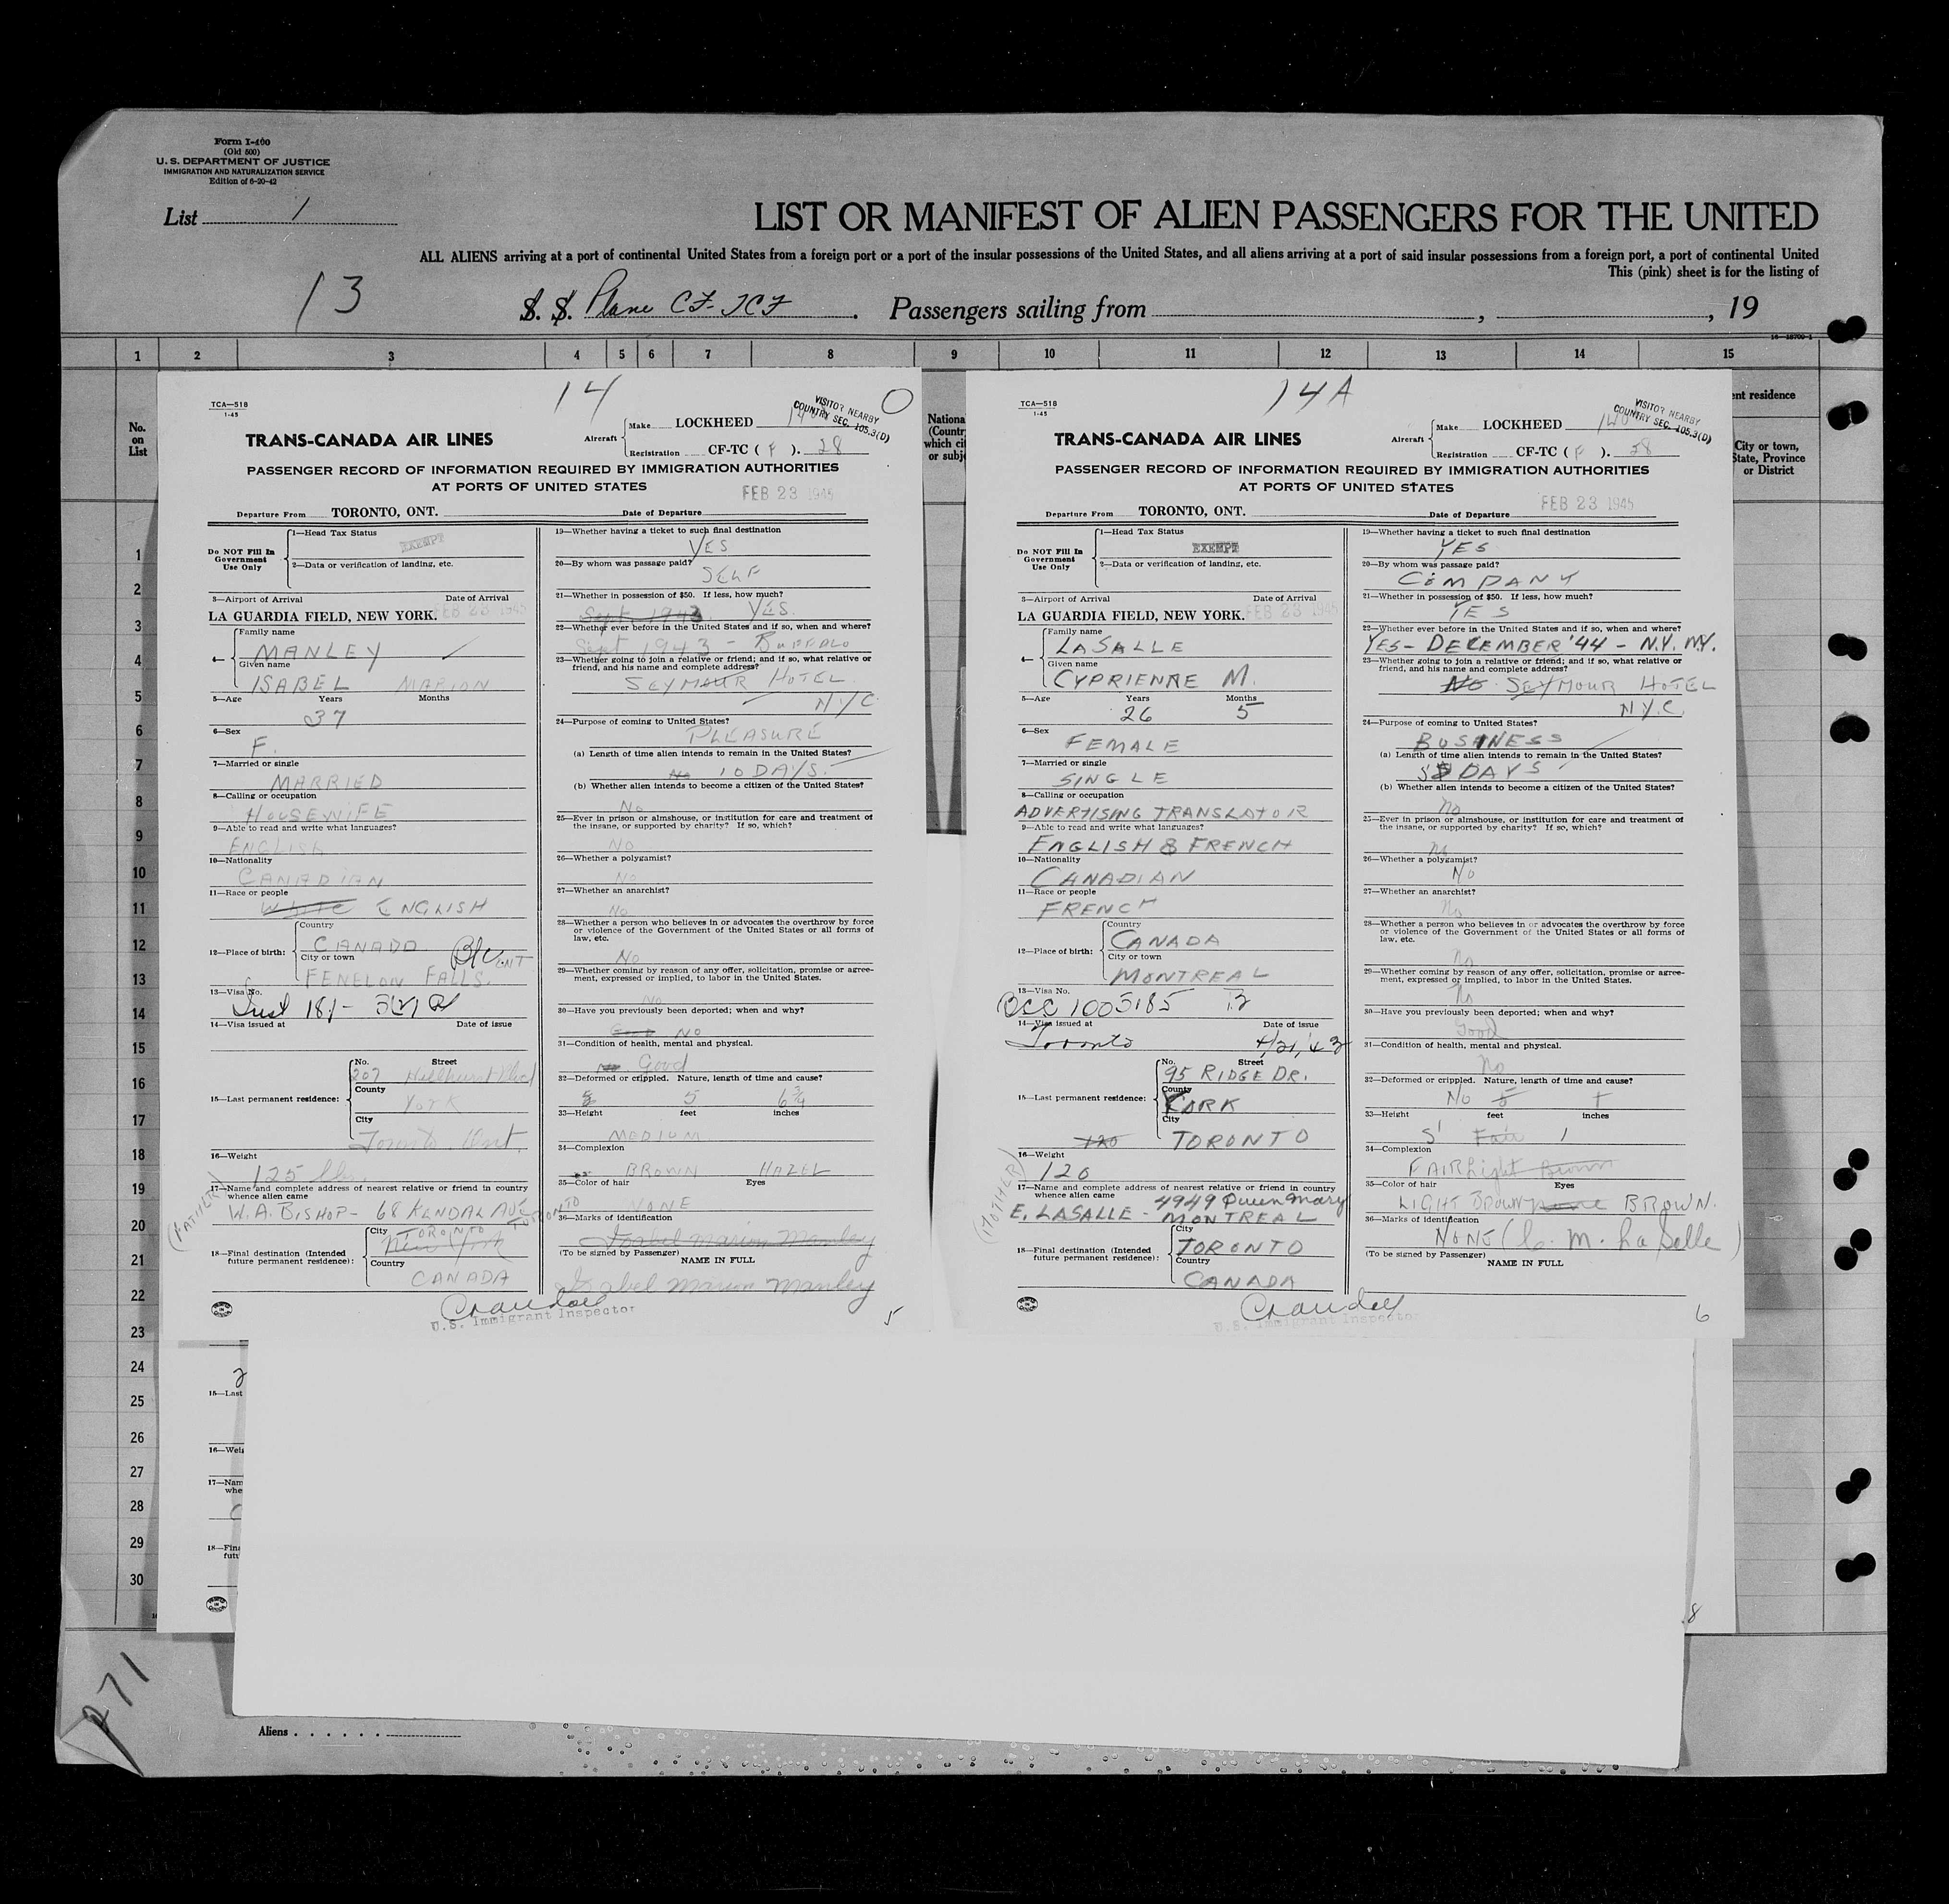 Form I-400
(Old 500)
U. S. DEPARTMENT OF JUSTICE
IMMIGRATION AND NATURALIZATION SERVICE
Edition of 6-20-42
List 1
LIST OR MANIFEST OF ALIEN PASSENGERS FOR THE UNITED
ALL ALIENS arriving at a port of continental United States from a foreign port or a port of the insular possessions of the United States, and all aliens arriving at a port of said insular possessions from a foreign port, a port of continental United
This (pink) sheet is for the listing of
13
S. S. Plane CF-TCF . Passengers sailing from , , 19
1 2 3 4 5 6 7 8 9 10 11 12 13 14 15
No.
on
List
14
TCA—518
1-45
TRANS-CANADA AIR LINES
Aircraft
Make LOCKHEED 14
Registration CF-TC ( F ). 28
VISITOR NEARBY
COUNTRY SEC. 105.3(D)
PASSENGER RECORD OF INFORMATION REQUIRED BY IMMIGRATION AUTHORITIES
AT PORTS OF UNITED STATES
FEB 23 1945
Departure From TORONTO, ONT. Date of Departure
Do NOT Fill In
Government
Use Only
1—Head Tax Status
EXEMPT
2—Data or verification of landing, etc.
3—Airport of Arrival Date of Arrival
LA GUARDIA FIELD, NEW YORK. FEB 23 1945
4—
Family name
MANLEY
Given name
ISABEL MARION
5—Age Years Months
37
6—Sex
F.
7—Married or single
MARRIED
8—Calling or occupation
HOUSEWIFE
9—Able to read and write what languages?
ENGLISH
10—Nationality
CANADIAN
11—Race or people
White ENGLISH
12—Place of birth:
Country
CANADA
City or town
FENELON FALLS. ONT
13—Visa No.
14—Visa issued at Date of issue
15—Last permanent residence:
No. Street
207 Hillhurst Blvd
County
York
City
Toronto Ont.
16—Weight
125 lbs.
17—Name and complete address of nearest relative or friend in country
whence alien came
(FATHER)
W. A. BISHOP - 68 KENDAL AVE TORONTO
18—Final destination (Intended
future permanent residence):
City
TORONTO
New York
Country
CANADA
19—Whether having a ticket to such final destination
YES
20—By whom was passage paid?
SELF
21—Whether in possession of $50. If less, how much?
Sept. 1943 YES.
22—Whether ever before in the United States and if so, when and where?
Sept 1943 - BUFFALO
23—Whether going to join a relative or friend; and if so, what relative or
friend, and his name and complete address?
SEYMOUR HOTEL
NYC
24—Purpose of coming to United States?
PLEASURE
(a) Length of time alien intends to remain in the United States?
No 10 DAYS.
(b) Whether alien intends to become a citizen of the United States?
No
25—Ever in prison or almshouse, or institution for care and treatment of
the insane, or supported by charity? If so, which?
No
26—Whether a polygamist?
No
27—Whether an anarchist?
No
28—Whether a person who believes in or advocates the overthrow by force
or violence of the Government of the United States or all forms of
law, etc.
No
29—Whether coming by reason of any offer, solicitation, promise or agree-
ment, expressed or implied, to labor in the United States.
No
30—Have you previously been deported; when and why?
Good NO
31—Condition of health, mental and physical.
No Good
32—Deformed or crippled. Nature, length of time and cause?
5 6 3/4
33—Height feet inches
MEDIUM
34—Complexion
BROWN HAZEL
35—Color of hair Eyes
NONE
36—Marks of identification
Isabel Marion Manley
(To be signed by Passenger) NAME IN FULL
Isabel Marion Manley
Crandall
U.S. Immigrant Inspector
5
Nationa
(Countr
which cit
or subje
14A
TCA—518
1-45
TRANS-CANADA AIR LINES
Aircraft
Make LOCKHEED 14
Registration CF-TC ( F ). 28
VISITOR NEARBY
COUNTRY SEC. 105.3(D)
PASSENGER RECORD OF INFORMATION REQUIRED BY IMMIGRATION AUTHORITIES
AT PORTS OF UNITED STATES
FEB 23 1945
Departure From TORONTO, ONT. Date of Departure
Do NOT Fill In
Government
Use Only
1—Head Tax Status
EXEMPT
2—Data or verification of landing, etc.
3—Airport of Arrival Date of Arrival
LA GUARDIA FIELD, NEW YORK. FEB 23 1945
4—
Family name
LASALLE
Given name
CYPRIENNE M.
5—Age Years Months
26 5
6—Sex
FEMALE
7—Married or single
SINGLE
8—Calling or occupation
ADVERTISING TRANSLATOR
9—Able to read and write what languages?
ENGLISH & FRENCH
10—Nationality
CANADIAN
11—Race or people
FRENCH
12—Place of birth:
Country
CANADA
City or town
MONTREAL
13—Visa No.
BCC 1005185
14—Visa issued at Date of issue
Toronto 4/21/43
15—Last permanent residence:
No. Street
95 RIDGE DR.
County
YORK
City
TORONTO
120
16—Weight
120
17—Name and complete address of nearest relative or friend in country
whence alien came
(MOTHER)
4949 Queen Mary
E. LASALLE - MONTREAL
18—Final destination (Intended
future permanent residence):
City
TORONTO
Country
CANADA
19—Whether having a ticket to such final destination
YES
20—By whom was passage paid?
COMPANY
21—Whether in possession of $50. If less, how much?
YES
22—Whether ever before in the United States and if so, when and where?
YES - DECEMBER '44 - N.Y. N.Y.
23—Whether going to join a relative or friend; and if so, what relative or
friend, and his name and complete address?
No. SEYMOUR HOTEL
N.Y.C.
24—Purpose of coming to United States?
BUSINESS
(a) Length of time alien intends to remain in the United States?
DAYS
(b) Whether alien intends to become a citizen of the United States?
No
25—Ever in prison or almshouse, or institution for care and treatment of
the insane, or supported by charity? If so, which?
No
26—Whether a polygamist?
No
27—Whether an anarchist?
No
28—Whether a person who believes in or advocates the overthrow by force
or violence of the Government of the United States or all forms of
law, etc.
No
29—Whether coming by reason of any offer, solicitation, promise or agree-
ment, expressed or implied, to labor in the United States.
No
30—Have you previously been deported; when and why?
Good
31—Condition of health, mental and physical.
No
32—Deformed or crippled. Nature, length of time and cause?
No 5 1
33—Height feet inches
5' Fair 1
34—Complexion
FAIR Light Brown
35—Color of hair Eyes
LIGHT BROWN none BROWN.
36—Marks of identification
NONE (C. M. LaSalle)
(To be signed by Passenger) NAME IN FULL
Crandall
U.S. Immigrant Inspector
6
ent residence
City or town,
State, Province
or District
1
2
3
4
5
6
7
8
9
10
11
12
13
14
15
16
17
18
19
20
21
22
23
24
25
26
27
28
29
30
2
15—Last
16—Wei
17—Nam
whe
18—Fina
futu
8
271
Aliens